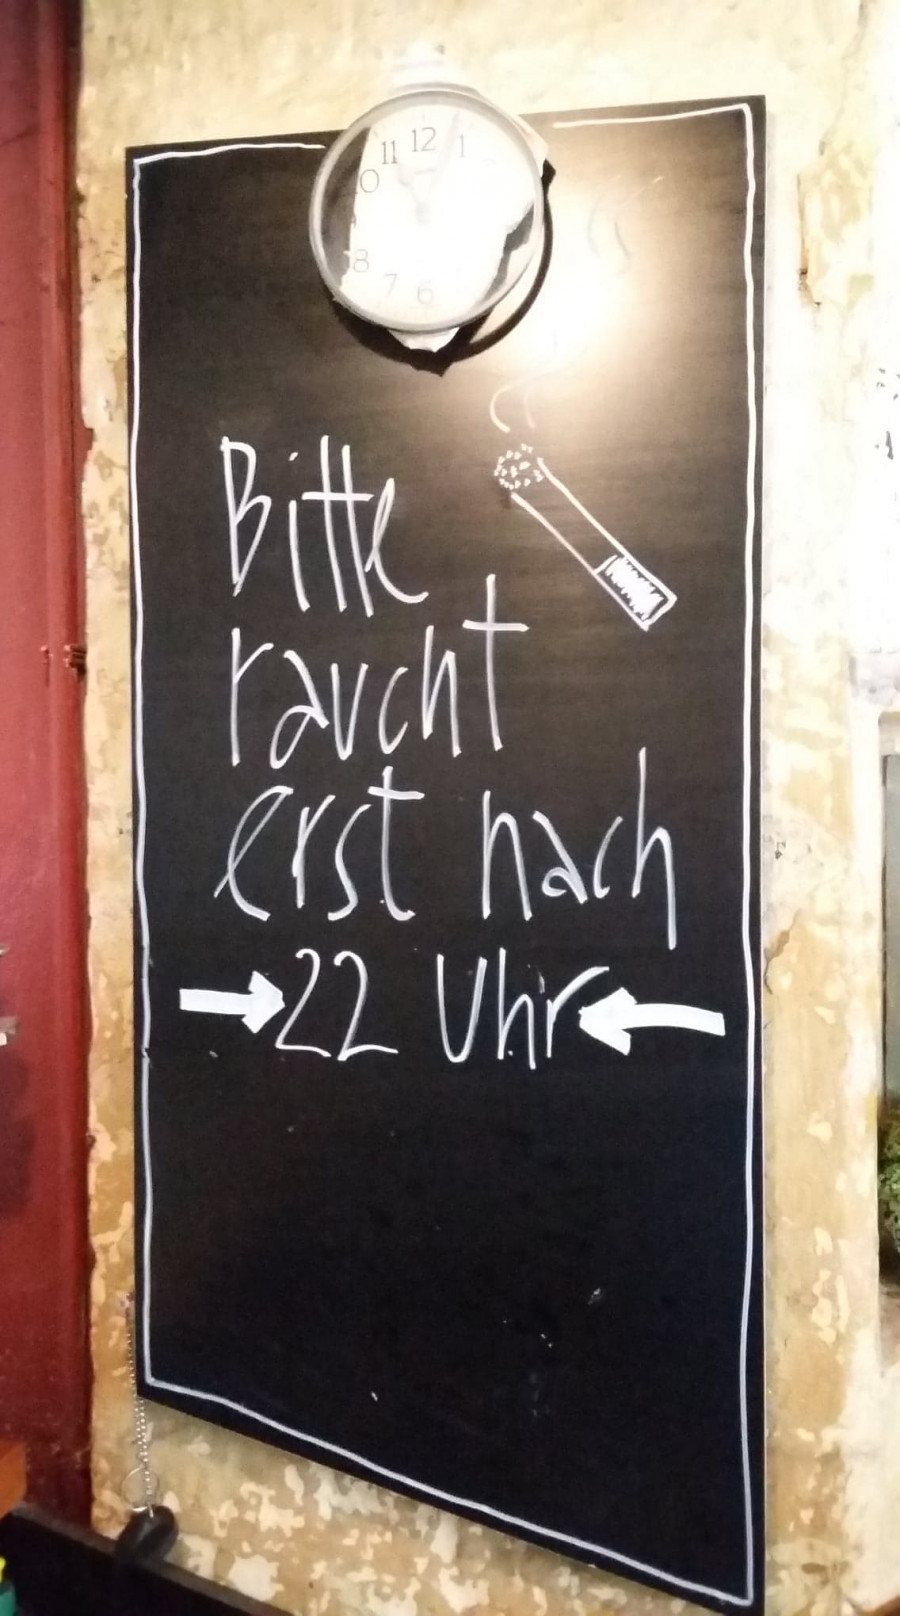 11 12 1
10
8
7 6
Bitte
raucht
erst nach
22 Uhr